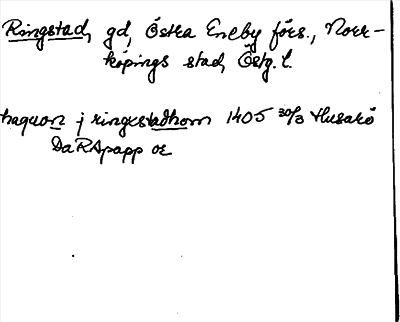 Ringstad, gd, Östra Eneby förs., Norr-
köpings stad, Östg. l.
haquon j ringestadhom 1405 30/3 Husarö
DaRApapp or